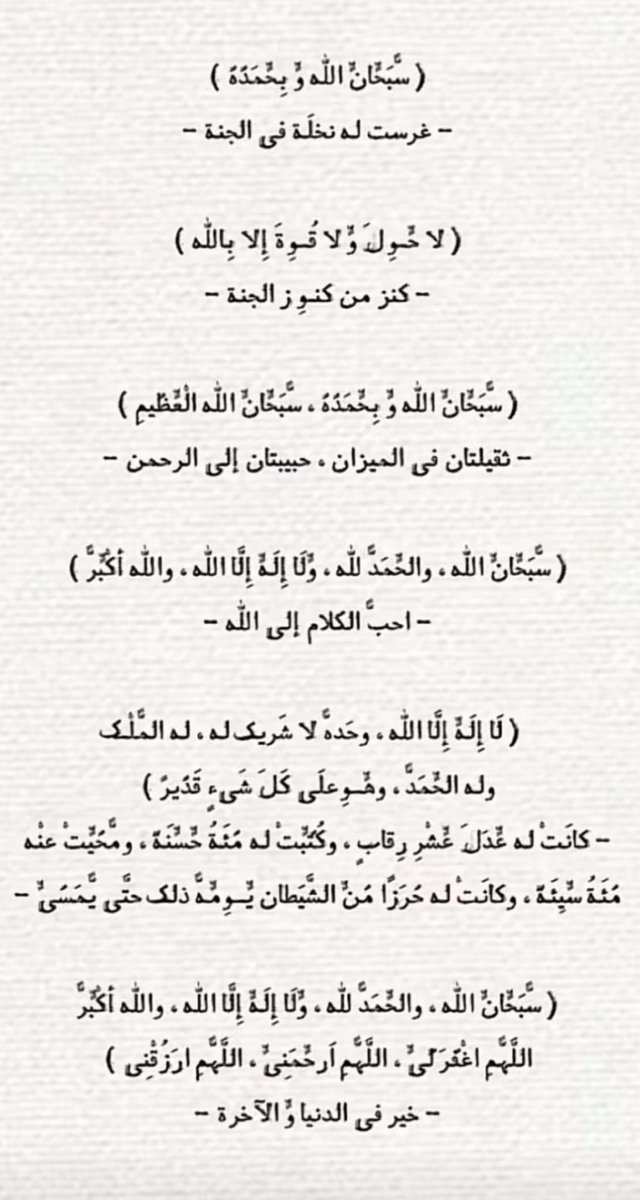 ( سَّبَحَّانَّ الله وَّ بِحَّمَدَهُ )
– غرست له نخلَة في الجنة –
( لا حَّـوِلَ وَّلا قُـوِةَ إلا بِالله )
– كنز من كنـوِز الجنة –
( سَّبَحَّانَّ الله وَّ بِحَّمَدَهُ ، سَّبَحَّانَّ الله الْعَّظَيمِ )
– ثقيلتان في الميزان ، حبيبتان إلى الرحمن –
( سَّبَحَّانَّ الله ، والحَّمَدَّ لله ، وَّلَا إِلَـهَّ إِلَّا الله ، والله أكَبَّرَّ )
– احبَّ الكلام إلى الله –
( لَا إِلَـهَّ إِلَّا الله ، وحَدهَّ لا شَريك له ، له المَّلْك
وله الحَّمَدَّ ، وهَّـوِعلَى كَلَ شَيءٍ قَدَيرٌ )
– كانَتْ له عَّدَلَ عَّشْرِ رِقابٍ ، وكُتَّبَتْ له مَئَةُ حَّسَّنَهّ ، ومَّحَيَّتْ عنْه
مَئَةُ سَّيِئَهّ ، وكانَتْ له حَرَزًا مَنَّ الشَّيَطان يَّـوِمَّهَّ ذلك حتَّى يَّمَسَيَّ –
( سَّبَحَّانَّ الله ، والحَّمَدَّ لله ، وَّلَا إِلَـهَّ إِلَّا الله ، والله أكَبَّرَّ
اللَّهَّمِ اغْفَرَلَيَّ ، اللَّهَّمِ اَرحَّمَنِيَّ ، اللَّهَّمِ ارَزُقْنِي )
– خير في الدنيا وَّ الآخرة –